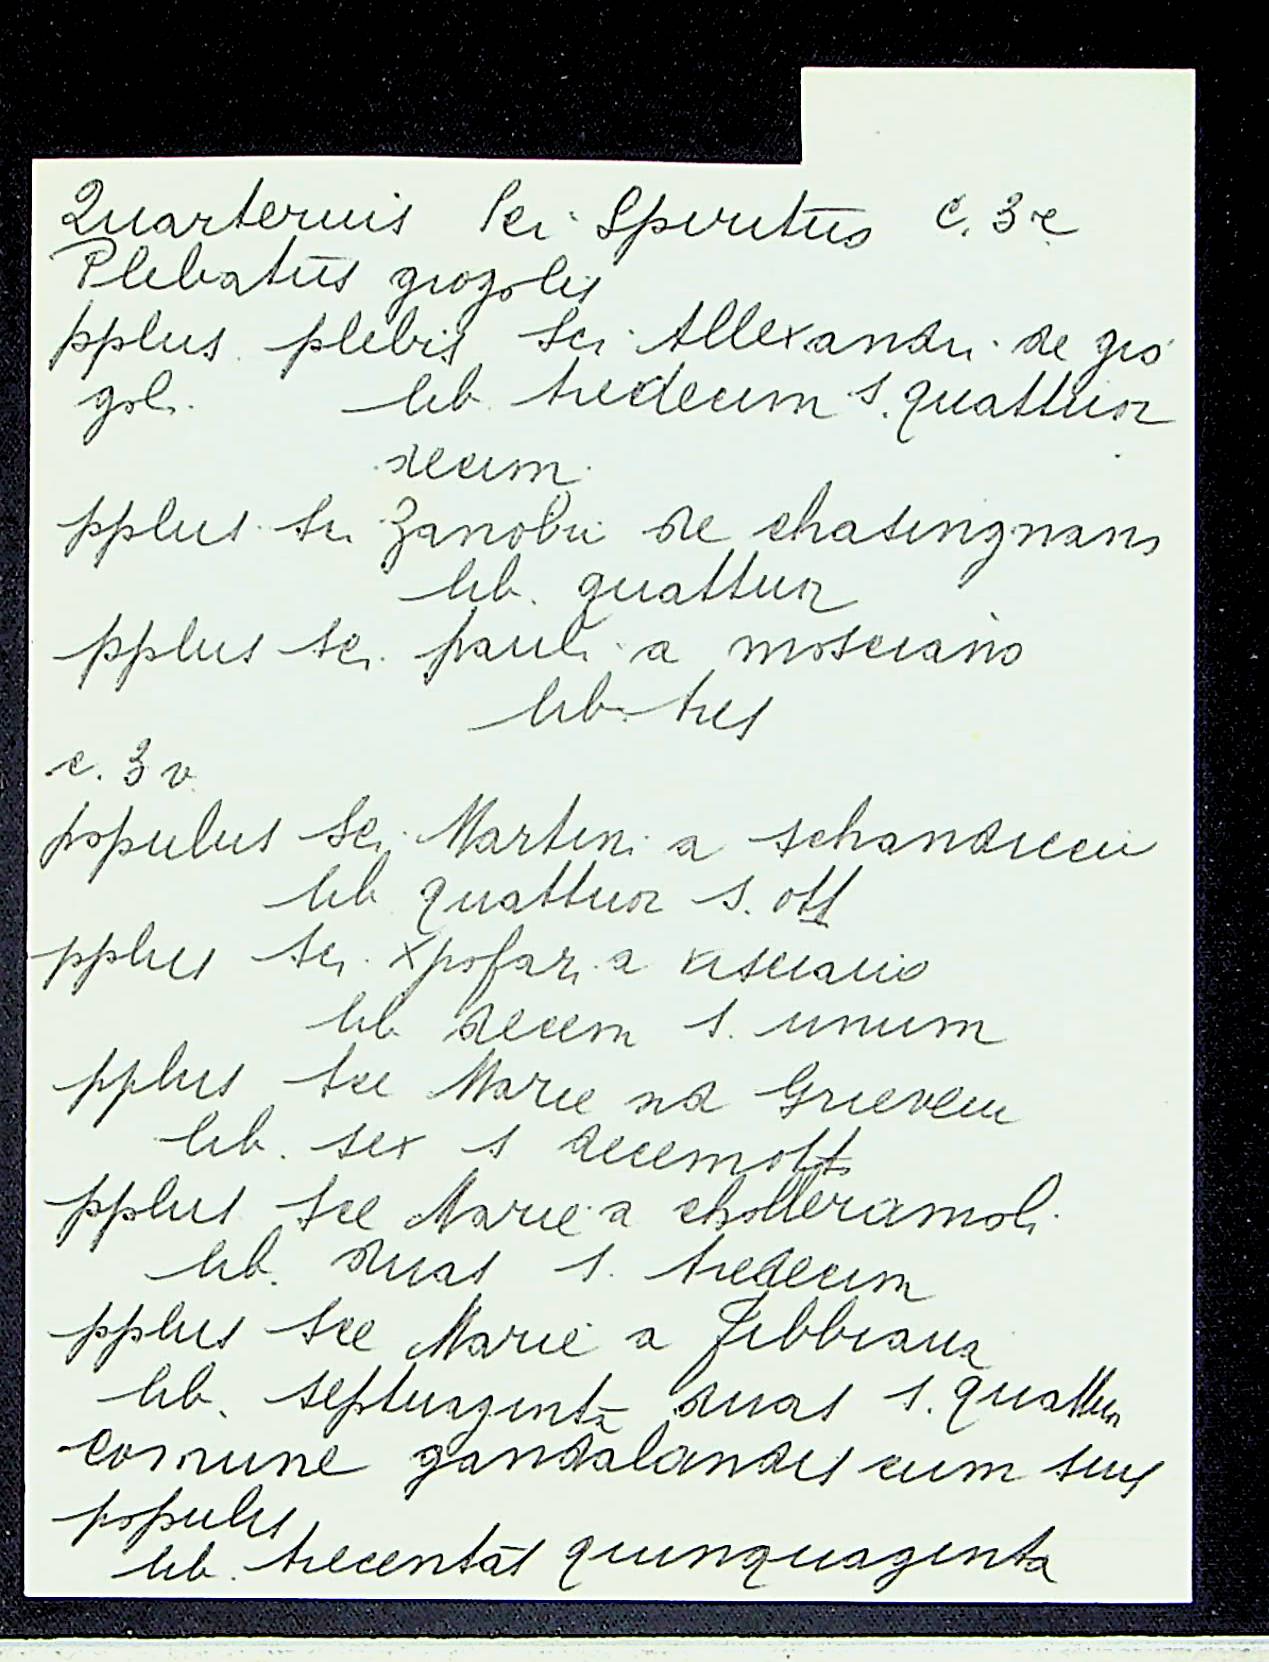 Quarterius Sci Spiritus c. 3 r
Plebatus giogolis
pplus plebis Sci Allexandri de gio
goli lib tredecim s. quattuor
decim
pplus Sci Zanobii de chasingnano
lib. quattuor
pplus Sci pauli a mosciano
lib. tres
c. 3 v
populus Sci Martini a schandicci
lib quattuor s. ott
pplus sci xpofari a visciano
lib decem s. unum
pplus See Marie ad Grievem
lib. sex s decemotto
pplus See Marie a cholleramoli
lib. duas s. tredecim
pplus See Marie a Febbiana
lib. septuaginta duas s. quattuor
comune gandalandis cum suis
populis
lib. trecentas quinquaginta